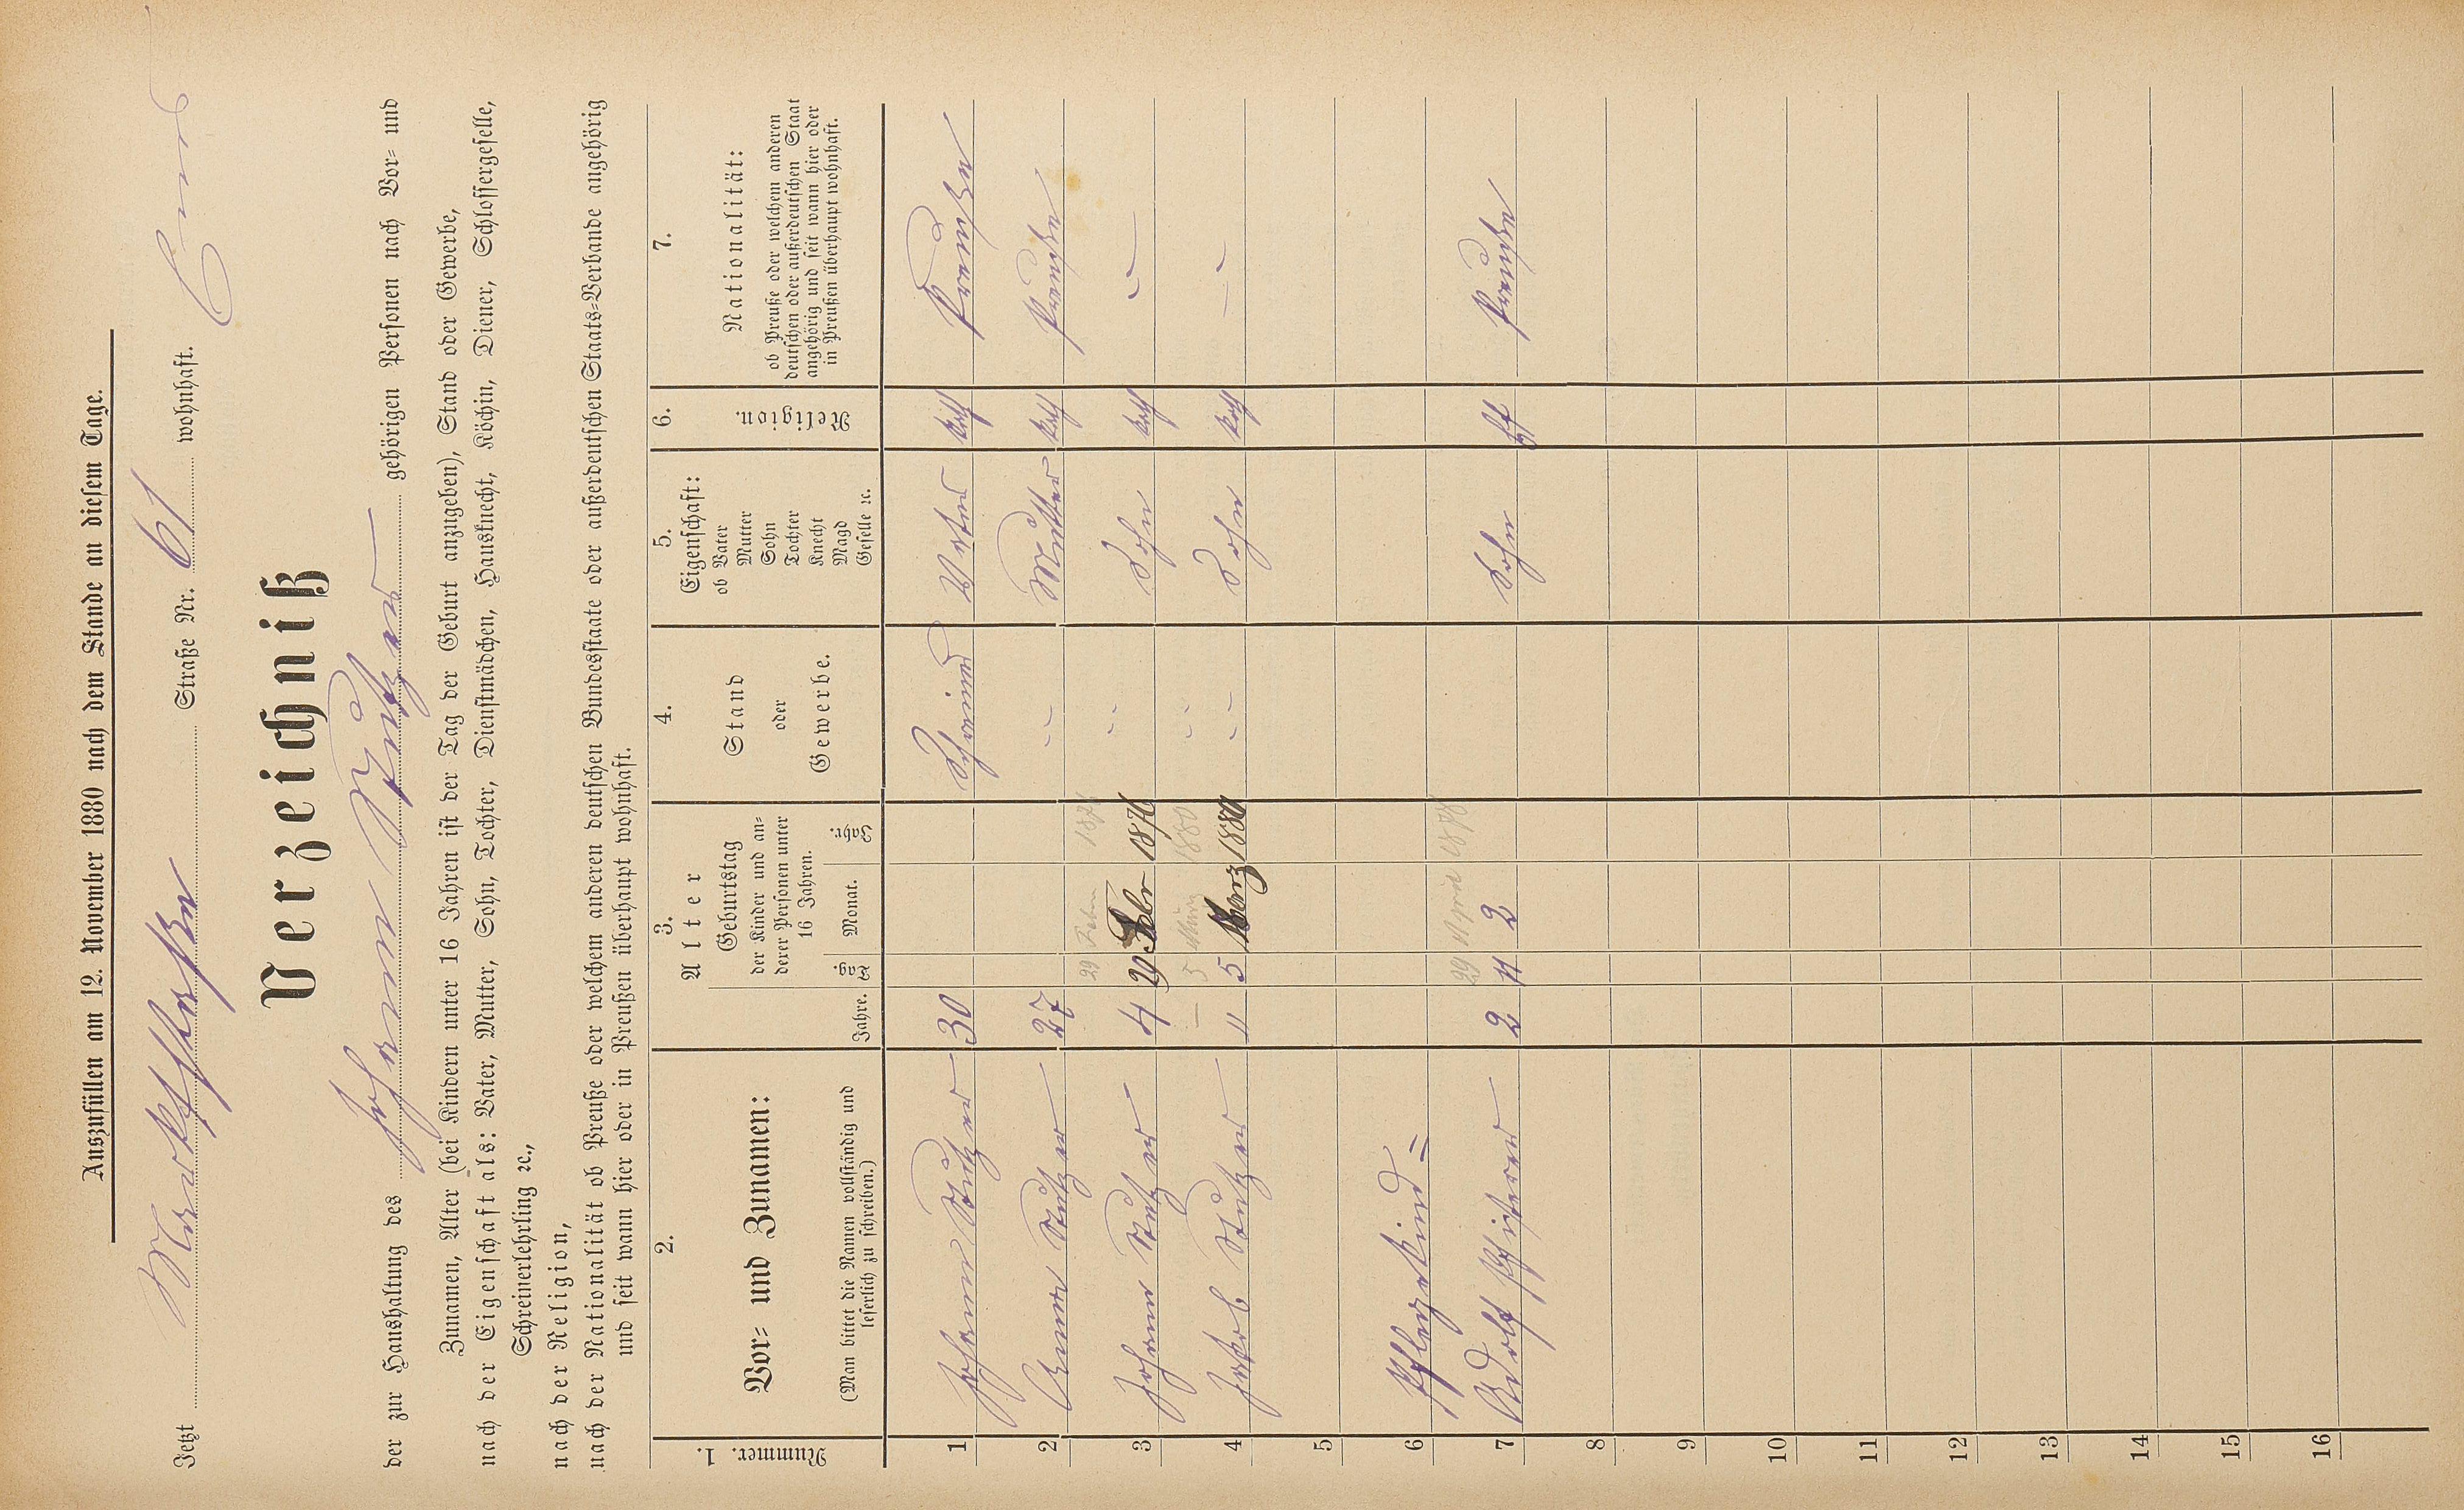 Auszufüllen am 12. November 1880 nach dem Stande an diesem Tage.
Jetzt Marktstraße Straße Nr. 61 wohnhaft.
Verzeichniß
der zur Haushaltung des Johann Stutzer gehörigen Personen nach Vor= und
Zunamen, Alter (bei Kindern unter 16 Jahren ist der Tag der Geburt anzugeben), Stand oder Gewerbe,
nach der Eigenschaft als: Vater, Mutter, Sohn, Tochter, Dienstmädchen, Hausknecht, Köchin, Diener, Schlossergeselle,
Schreinerlehrling ꝛc.,
nach der Religion,
nach der Nationalität ob Preuße oder welchem anderen deutschen Bundesstaate oder außerdeutschen Staats=Verbande angehörig
und seit wann hier oder in Preußen überhaupt wohnhaft.
1. Nummer.
2. Vor= und Zunamen:
(Man bittet die Namen vollständig und
leserlich zu schreiben.)
3. Alter
Jahre.
Geburtstag
der Kinder und an=
derer Personen unter
16 Jahren.
Tag Monat. Jahr.
4. Stand
oder
Gewerbe.
5. Eigenschaft:
ob Vater
Mutter
Sohn
Tochter
Knecht
Magd
Geselle ꝛc.
6. Religion.
7. Nationalität:
ob Preuße oder welchem anderen
deutschen oder außerdeutschen Staat
angehörig und seit wann hier oder
in Preußen überhaupt wohnhaft.
1 Johann Stutzer 30 Schreiner Vater kath Preuße
2 Anna Stutzer 27 Mutter kath Preuße
29 Febr 1876
3 Johann Stutzer 4 29 Febr 1876 Sohn kath
— 5 März 1880
4 Jakob Stutzer " 5 März 1880 Sohn kath
5
6 Pflegekind=
29 April 1878
7 Adolf Pfisterer 2 11 2 Sohn Preuße
8
9
10
11
12
13
14
15
16